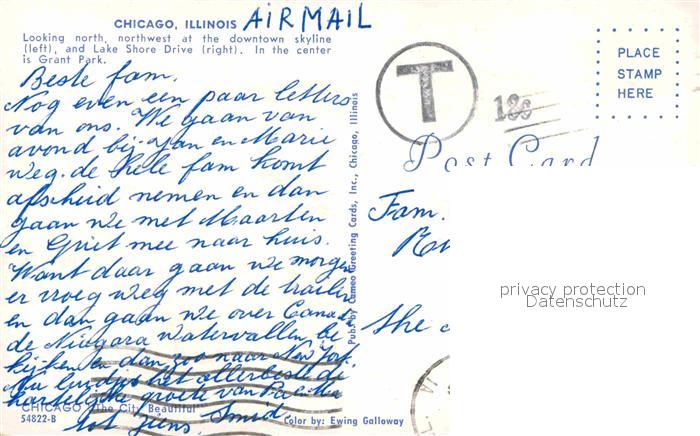 CHICAGO, ILLINOIS AIRMAIL
Looking north, northwest at the downtown skyline
(left), and Lake Shore Drive (right). In the center
is Grant Park.
Beste fam.
Nog even een paar letters
van ons. We gaan van
avond bij Jan en Marie
weg. de hele fam komt
afscheid nemen en dan
gaan we met Maarten
en Griet mee naar huis.
Want daar gaan we morgen
er vroeg weg met de trailer
en dan gaan we over Canada
de Niagara watervallen be
kijken en dan zoo naar New York.
Nu luidjes het allerbeste di
hartelijke groete van
tot ziens.
CHICAGO "The City Beautiful"
54822-B
Color by: Ewing Galloway
Pub. by Cameo Greeting Cards, Inc., Chicago, Illinois
T
18c
PLACE
STAMP
HERE
Post Card
Fam.
The
privacy protection
Datenschutz